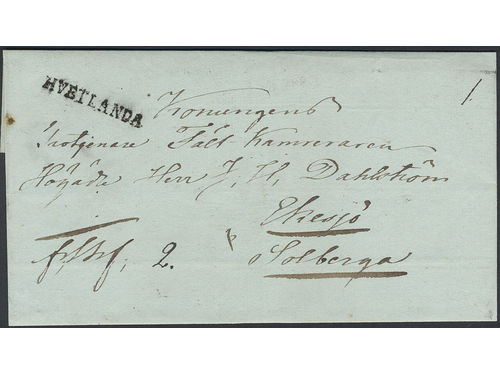 HVETLANDA
1.
Konungens
Trotjenare Fält Kamreraren
Högädle Herr J. H. Dahlström
Ekesjö
2. Solberga